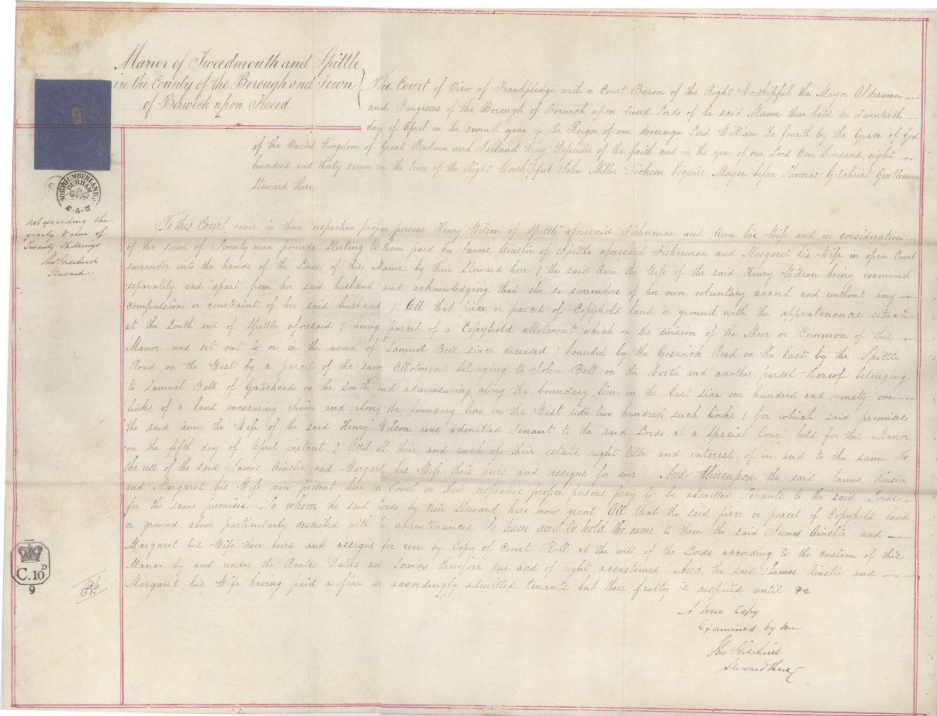 Manor of Tweedmouth and Spittle
in the County of the Borough and Town
of Berwick upon Tweed
The Court of View of Frankpledge with a Court Baron of the Right Worshipful the Mayor Aldermen
and Burgesses of the Borough of Berwick upon Tweed Lords of the said Manor there held the twentieth
day of April in the seventh year of the Reign of our Sovereign Lord William the fourth by the Grace of God
of the United Kingdom of Great Britain and Ireland King Defender of the faith and in the year of our Lord One thousand eight
hundred and thirty seven in the time of the Right Worshipful John Miller Dickson Esquire Mayor before Thomas Gilchrist Gentleman
Steward there
NORTHUMBERLAND
DURHAM
Not exceeding the
yearly value of
Twenty Shillings
Thos Gilchrist
Steward
To this Court come in their respective proper persons Henry Wilson of Spittle aforesaid Fisherman and Ann his Wife and in consideration
of the sum of Twenty nine pounds Sterling to them paid by James Ainslie of Spittle aforesaid Fisherman and Margaret his Wife in open Court
surrender into the hands of the Lords of this Manor by their Steward here ( the said Ann the Wife of the said Henry Wilson being examined
separately and apart from her said husband and acknowledging that she so surrenders of her own voluntary accord and without any
compulsion or constraint of her said husband ) All that piece or parcel of Copyhold land or ground with the appurtenances situate
at the South end of Spittle aforesaid ( being parcel of a Copyhold allotment which on the division of the Moor or Common of this
Manor was set out to or in the name of Samuel Bell since deceased ) bounded by the Goswick Road on the East by the Spittle
Road on the West by a parcel of the same Allotment belonging to John Bell on the North and another parcel thereof belonging
to Samuel Bell of Gateshead on the South and admeasuring along the boundary line on the East side one hundred and ninety one
links of a land measuring chain and along the boundary line on the West side two hundred such links ( for which said premises
the said Ann the Wife of the said Henry Wilson was admitted Tenant to the said Lords at a Special Court held for this Manor
on the fifth day of April instant ) And all their and each of their estate right title and interest of in and to the same To
the use of the said James Ainslie and Margaret his Wife their heirs and assigns for ever And thereupon the said James Ainslie
and Margaret his Wife now present here in Court in their respective proper persons pray to be admitted Tenants to the said Lords
for the same premises To whom the said Lords by their Steward here now grant All that the said piece or parcel of Copyhold land
or ground above particularly described with the appurtenances To have and to hold the same to them the said James Ainslie and
Margaret his Wife their heirs and assigns for ever by Copy of Court Roll at the will of the Lords according to the custom of this
Manor by and under the Rents Duties and Services therefore due and of right accustomed And the said James Ainslie and
Margaret his Wife having paid a fine are accordingly admitted tenants but their fealty is respited until &c
C.10 D
9
A true Copy
Examined by me
Thos Gilchrist
Steward there